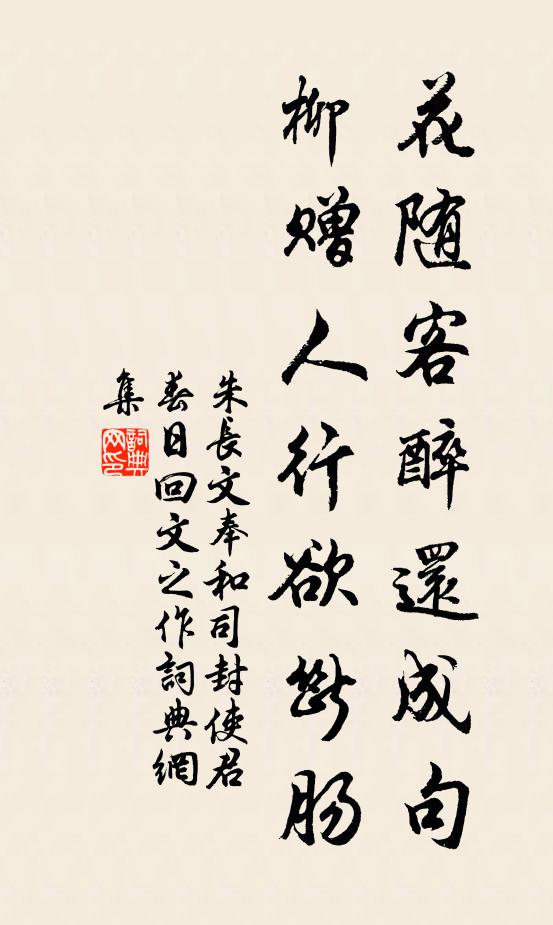 花随客醉還成句
柳赠人行欲斷肠
朱長文奉和司封使君
春日回文之作詞典網
集
詞典
网印